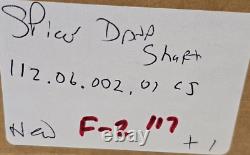 Spicer Drive
Shaft
112.06.002.01 CS
New F-2 117 +1